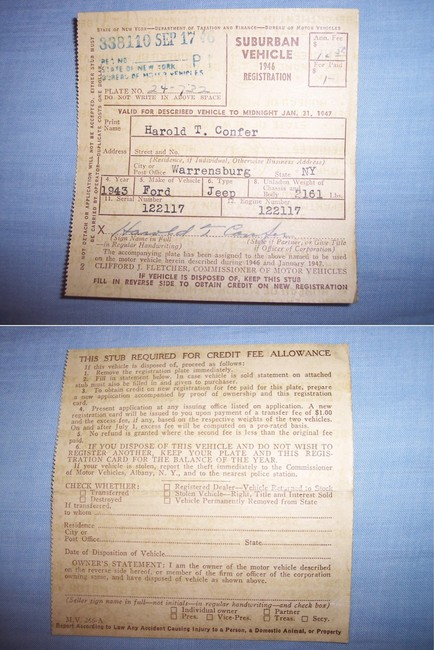 STATE OF NEW YORK—DEPARTMENT OF TAXATION AND FINANCE—BUREAU OF MOTOR VEHICLES
338110 SEP 17
STATE OF NEW YORK
BUREAU OF MOTOR VEHICLES
PLATE NO. 24-722
DO NOT WRITE IN ABOVE SPACE
SUBURBAN
VEHICLE
1946
REGISTRATION
Am. Fee
$
Fee Paid
$
VALID FOR DESCRIBED VEHICLE TO MIDNIGHT JAN. 31, 1947
Print
Name Harold T. Confer
Address Street and No.
(Residence, if Individual, Otherwise Business Address)
City or
Post Office Warrensburg State NY
4. Year 5. Make of Vehicle 6. Type 8. Unladen Weight of
Chassis and
Body
1943 Ford Jeep 2161 Lbs.
11. Serial Number 12. Engine Number
122117 122117
X Harold T. Confer
(Sign Name in Full (State if Partner, or Give Title
in Regular Handwriting) if Officer of Corporation)
The accompanying plate has been assigned to the above named to be used
on the motor vehicle herein described during 1946 and January 1947.
CLIFFORD J. FLETCHER, COMMISSIONER OF MOTOR VEHICLES
IF VEHICLE IS DISPOSED OF, KEEP THIS STUB
FILL IN REVERSE SIDE TO OBTAIN CREDIT ON NEW REGISTRATION
THIS STUB REQUIRED FOR CREDIT FEE ALLOWANCE
If this vehicle is disposed of, proceed as follows:
1. Remove the registration plate immediately.
2. Fill in statement below. In case vehicle is sold statement on attached
stub must also be filled in and given to purchaser.
3. To obtain credit on new registration for fee paid for this plate, prepare
a new application accompanied by proof of ownership and this registration
card.
4. Present application at any issuing office listed on application. A new
registration card will be issued to you upon payment of a transfer fee of $1.00
and the excess fee, if any, based on the respective weights of the two vehicles.
On and after July 1, excess fee will be computed on a pro-rated basis.
5. No refund is granted where the second fee is less than the original fee
paid.
6. IF YOU DISPOSE OF THIS VEHICLE AND DO NOT WISH TO
REGISTER ANOTHER, KEEP YOUR PLATE AND THIS REGIS-
TRATION CARD FOR THE BALANCE OF THE YEAR.
If your vehicle is stolen, report the theft immediately to the Commissioner
of Motor Vehicles, Albany, N. Y., and to the nearest police station.
CHECK WHETHER: Registered Dealer—Vehicle Returned to Stock
Transferred Stolen Vehicle—Right, Title and Interest Sold
Destroyed Vehicle Permanently Removed from State
If transferred,
to whom
Residence
City or
Post Office State
Date of Disposition of Vehicle
OWNER'S STATEMENT: I am the owner of the motor vehicle described
on the reverse side hereof, or member of the firm or officer of the corporation
owning same, and have disposed of vehicle as shown above.
(Seller sign name in full—not initials—in regular handwriting—and check box)
Individual owner Partner
Pres. Vice-Pres. Treas. Secy.
Report According to Law Any Accident Causing Injury to a Person, a Domestic Animal, or Property